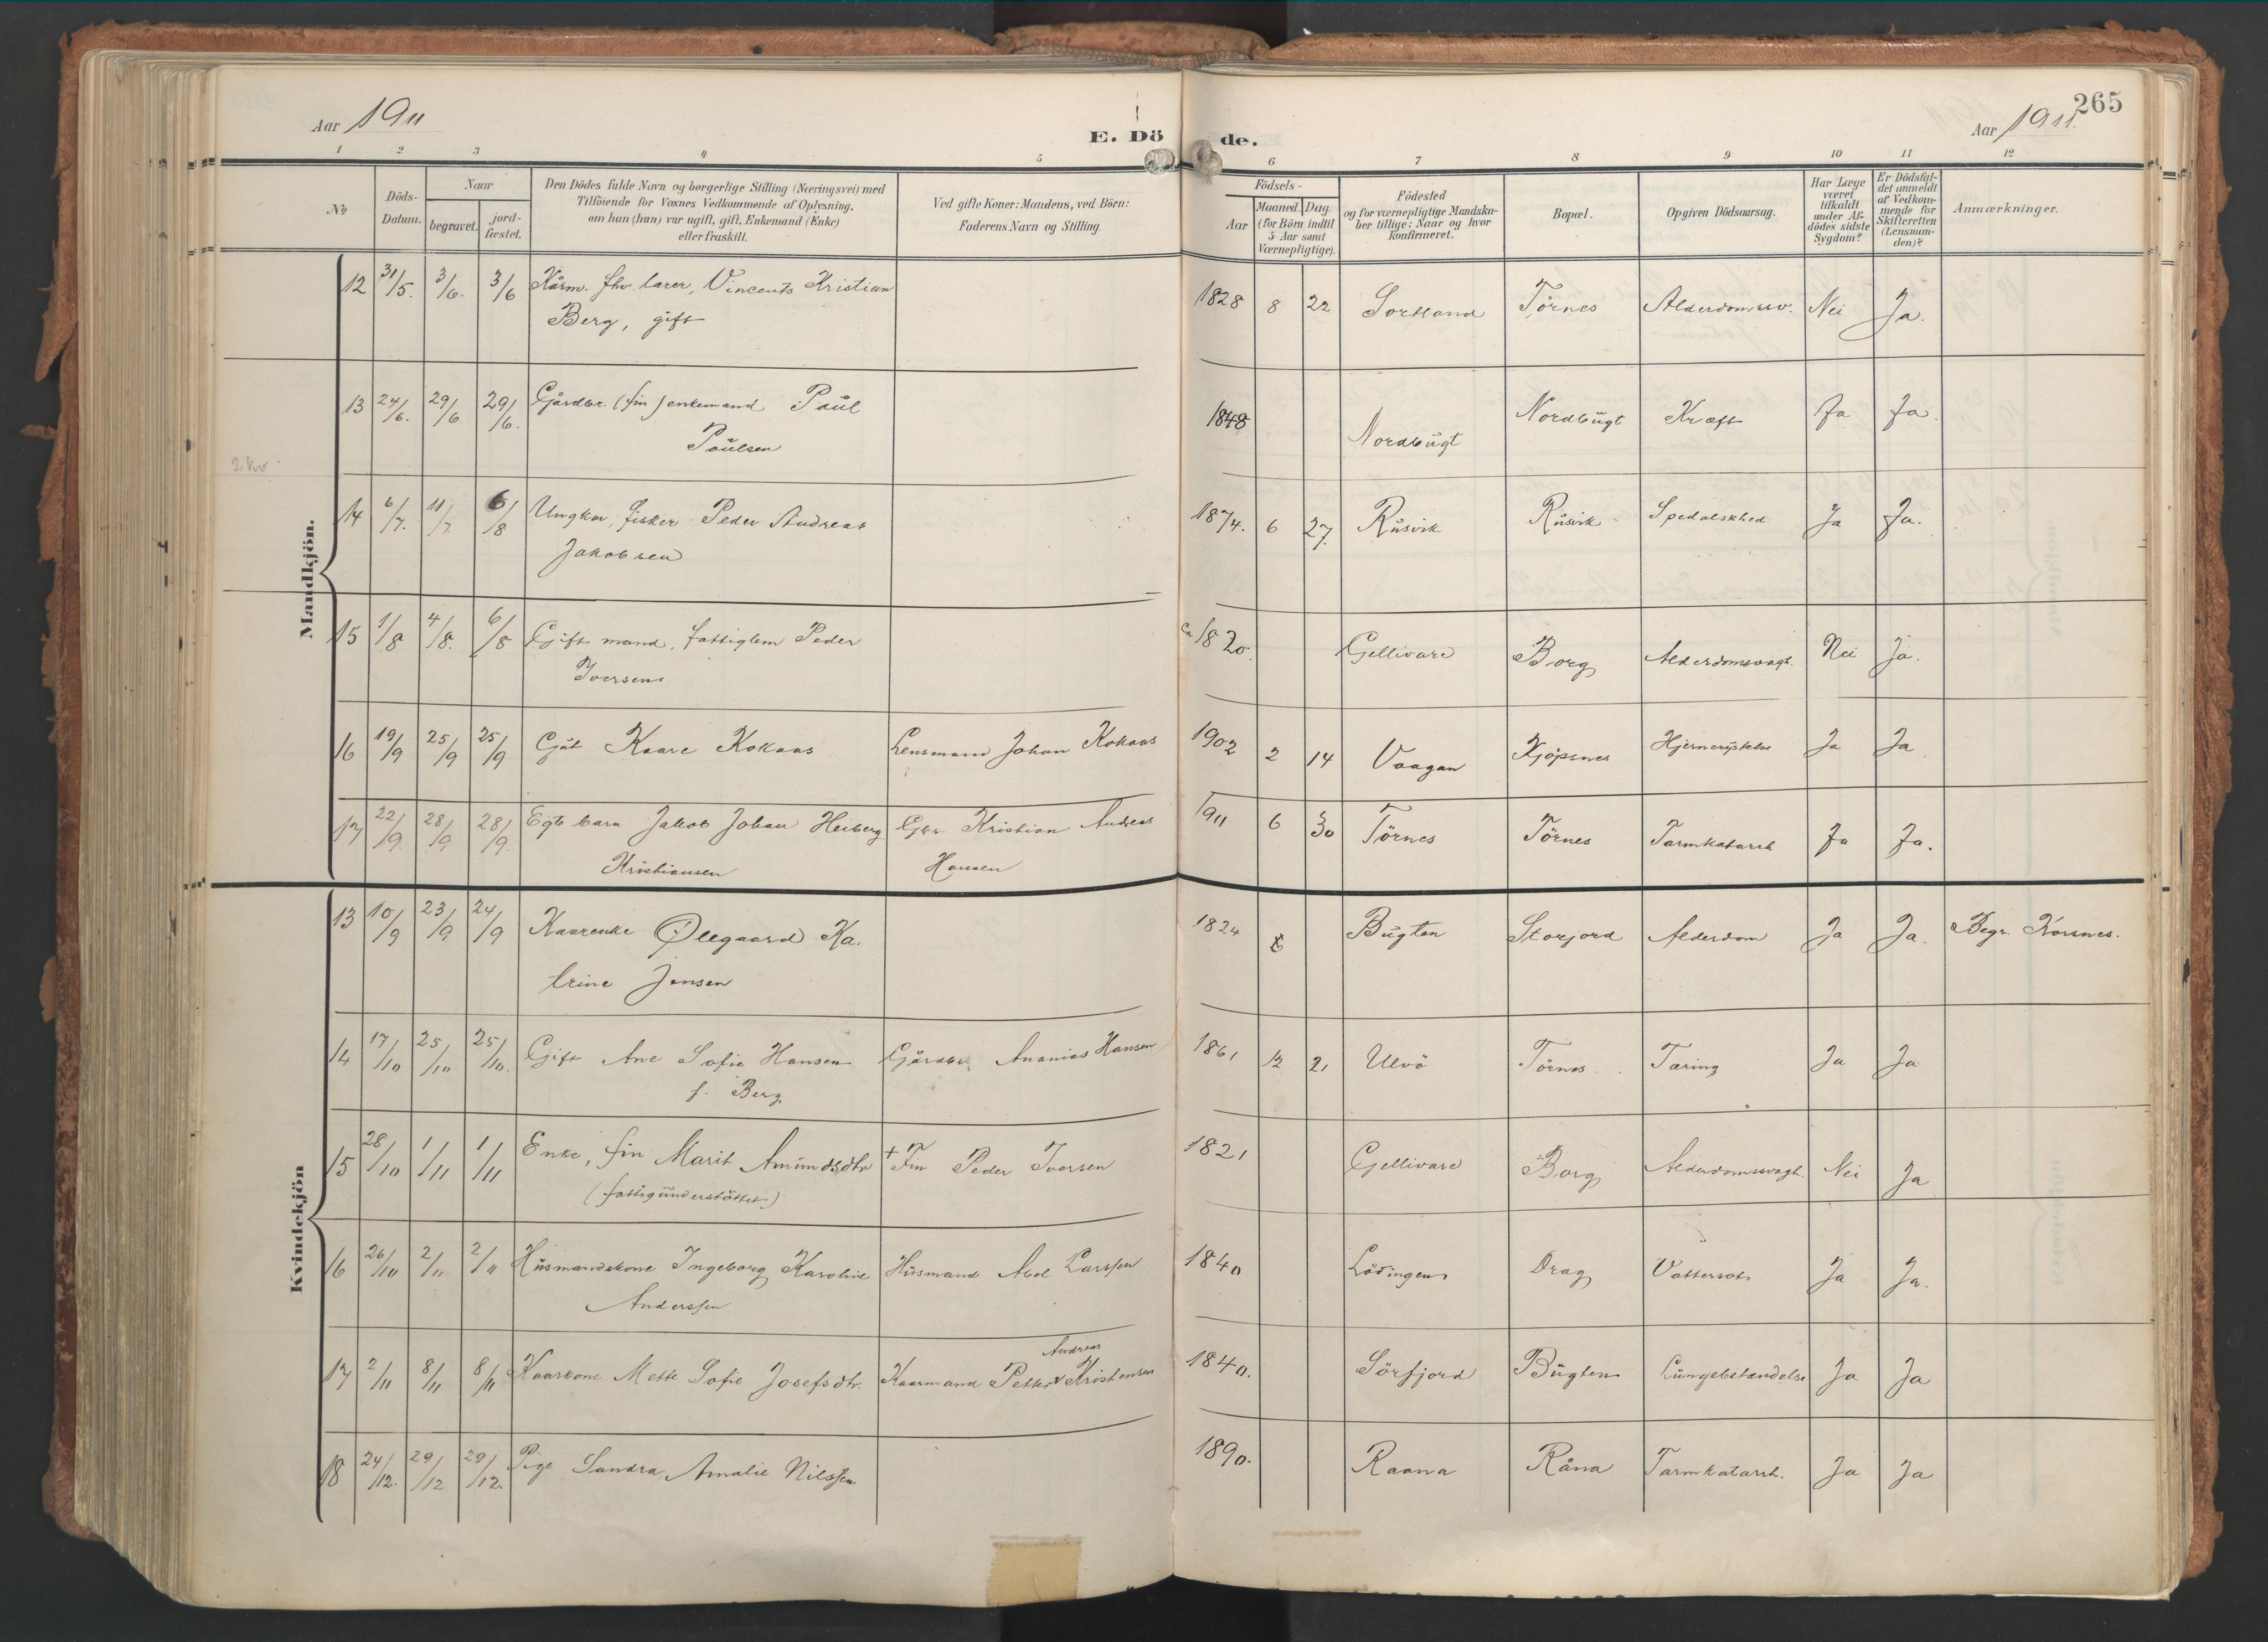 265
Aar 1911
E. Dö de.
Aar 1911.
1 2 3 4 5 6 7 8 9 10 11 12
No
Döds-Datum.
Naar
begravet.
jord-fæstet.
Den Dödes fulde Navn og borgerlige Stilling (Næringsvei) med
Tilföiende for Voxnes Vedkommende af Oplysning,
om han (hun) var ugift, gift, Enkemand (Enke)
eller fraskilt.
Ved gifte Koner: Mandens, ved Börn:
Faderens Navn og Stilling.
Födsels-
Aar
Maaned. Dag.
(for Börn indtil
5 Aar samt
Værnepligtige).
Födested
og for værnepligtige Mandska-
ber tillige: Naar og hvor
Konfirmeret.
Bopæl.
Opgiven Dödsaarsag.
Har Læge
været
tilkaldt
under Af-
dödes sidste
Sygdom?
Er Dödsfal-
det anmeldt
af Vedkom-
mende for
Skifteretten
(Lensman-
den)?
Anmærkninger.
Mandkjön.
12 31/5. 3/6. 3/6 Kårm. fhv. lærer, Vincents Kristian 1828 8 22 Sortland Törnes Alderdomssv. Nei Ja.
Berg, gift
13 24/6. 29/6 29/6. Gårdbr. (fin) enkemand Paul 1848 Nordbugt Nordbugt Kræft Ja Ja.
Paulsen
2 kv
14 6/7. 11/7 6/8 Ungkar, fisker Peder Andreas 1874. 6 27. Rusvik Rusvik Spedalskhed. Ja Ja.
Jakobsen
15 1/8 4/8. 6/8 Gift mand, fattiglem Peder ca 1820. Gellivare Borg Alderdomsvagh. Nei Ja.
Iversen
16 19/9 25/9 25/9 Gut Kaare Kokaas Lensmand Johan Kokaas 1902 2 14 Vaagan Kjöpsnes Hjernerystelse Ja Ja
17 22/9. 28/9 28/9. Egte barn Jakob Johan Heiberg Gbr. Kristian Andreas 1911 6 30 Törnes Törnes Tarmkatarrh Ja Ja.
Kristiansen Hansen
Kvindekjön
13 10/9 23/9 24/9 Kaarenke Olegaard Ka- 1824 6 Bugten Storjord Alderdom Ja Ja. Begr. Korsnes.
trine Jensen
14 17/10 25/10 25/10. Gift Ane Sofie Hansen Gårdbr. Ananias Hansen 1861 12 21 Ulvö Törnes Tæring Ja Ja
f. Berg
15 28/10 1/11 1/11 Enke, fin Marit Amundsdtr + Fin Peder Iversen 1821 Gellivare Borg Alderdomssvagh. Nei Ja
(fattigunderstöttet)
16 26/10 2/11 2/11 Husmandskone Ingeborg Karoline Husmand Abel Larssen 1840 Lödingen Drag Vattersot Ja Ja.
Anderssen
Andreas
17 2/11 8/11 8/11 Kaarkone Mette Sofie Josefsdtr. Kaarmand Petter Kristensen 1840. Sörfjord Bugten Lungebetændelse Ja Ja
18 24/12. 29/12 29/12. Pige Sandra Amalie Nilssen 1890. Raana Råna Tarmkatarrh. Ja Ja